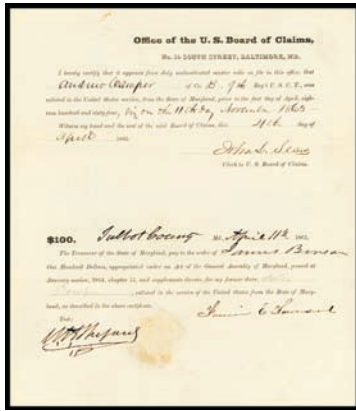 Office of the U. S. Board of Claims,
No. 15 SOUTH STREET, BALTIMORE, MD.
I hereby certify that it appears from duly authenticated muster rolls on file in this office, that
Andrew Camper of Co. B. 9th Reg't U. S. C. T., was
enlisted in the United States service, from the State of Maryland, prior to the first day of April, eigh-
teen hundred and sixty-four, viz on the 11th day November 1863
Witness my hand and the seal of the said Board of Claims, this 4th day of
April 186
John S. Sears
Clerk to U. S. Board of Claims.
$100. Talbot County Md. April 11th 186
The Treasurer of the State of Maryland, pay to the order of James Benson
One Hundred Dollars, appropriated under an Act of the General Assembly of Maryland, passed at
January session, 1864, chapter 15, and supplements thereto, for my former slave,
enlisted in the service of the United States from the State of Mary-
land, as described in the above certificate.
Test: